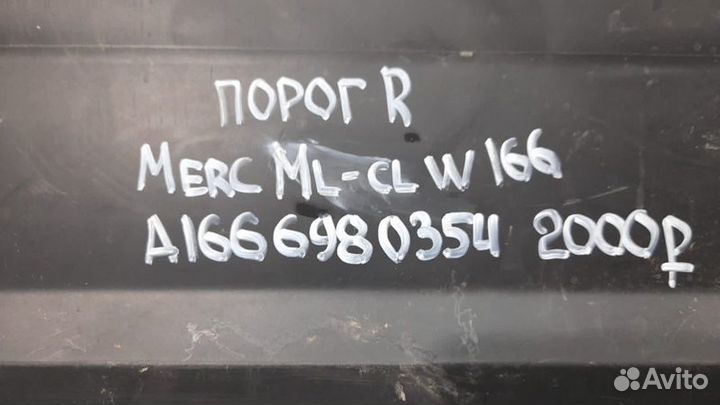 ПОРОГ R
MERC ML-CL W166
A1666980354 2000₽
Avito